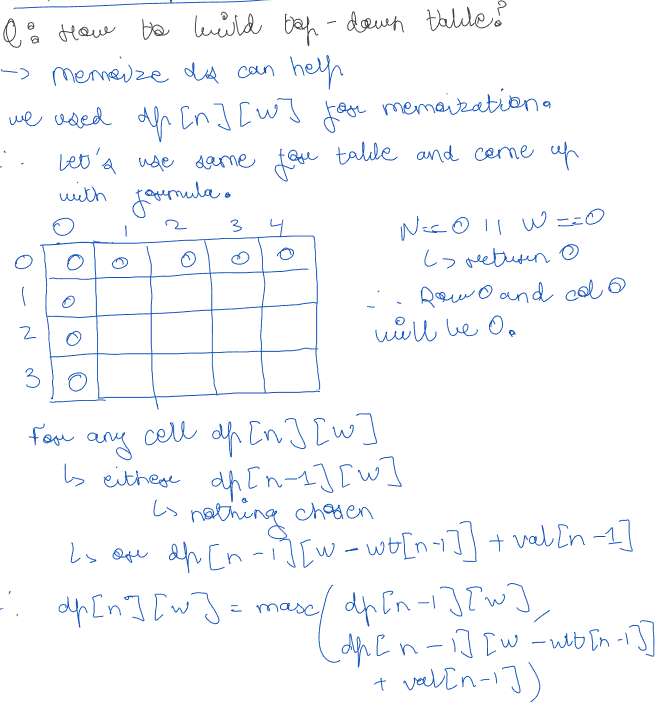 Q: How to build top-down table?
-> memoize ds can help
we used dp[n][w] for memoization.
∴ Let's use same for table and come up
with formula.
0 1 2 3 4
0 0 0 0 0 0
1 0
2 0
3 0
N==0 || W==0
↳ return 0
∴ Row 0 and col 0
will be 0.
For any cell dp[n][w]
↳ either dp[n-1][w]
↳ nothing chosen
↳ or dp[n-1][w-wt[n-1]] + val[n-1]
∴ dp[n][w] = max( dp[n-1][w],
dp[n-1][w-wt[n-1]]
+ val[n-1])